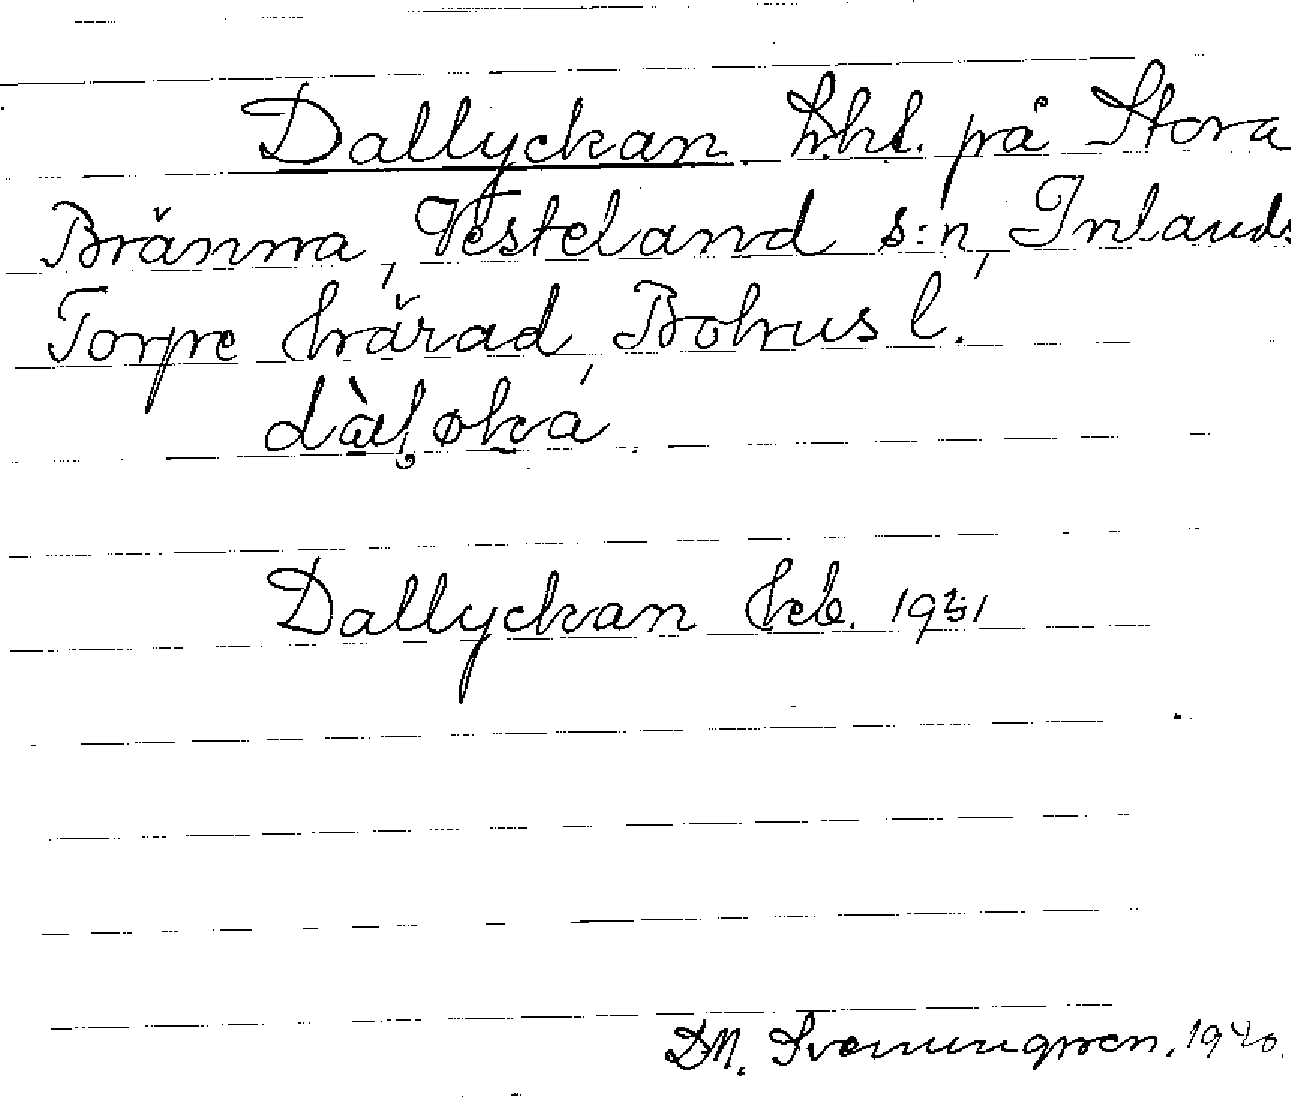 Dallyckan. lht. på Stora
Bränna, Vesteland s:n, Inlands
Torpe härad, Bohus l.
Dallyckan 1931
D.N. Svenungsen. 1940.